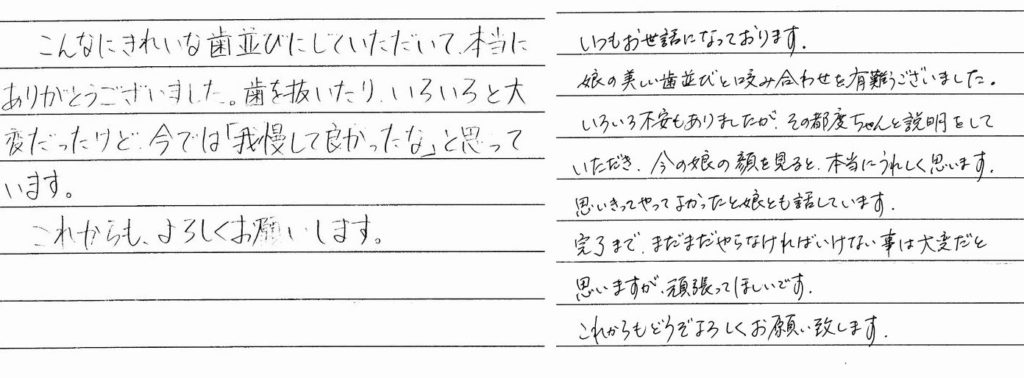 こんなにきれいな歯並びにしていただいて、本当に
ありがとうございました。歯を抜いたり、いろいろと大
変だったけど、今では「我慢して良かったな」と思って
います。
これからも、よろしくお願いします。
いつもお世話になっております。
娘の美しい歯並びと咬み合わせを有難うございました。
いろいろ不安もありましたが、その都度ちゃんと説明をして
いただき、今の娘の顔を見ると、本当にうれしく思います。
思いきってやってよかったと娘とも話しています。
完了まで、まだまだやらなければいけない事は大変だと
思いますが、頑張ってほしいです。
これからもどうぞよろしくお願い致します。